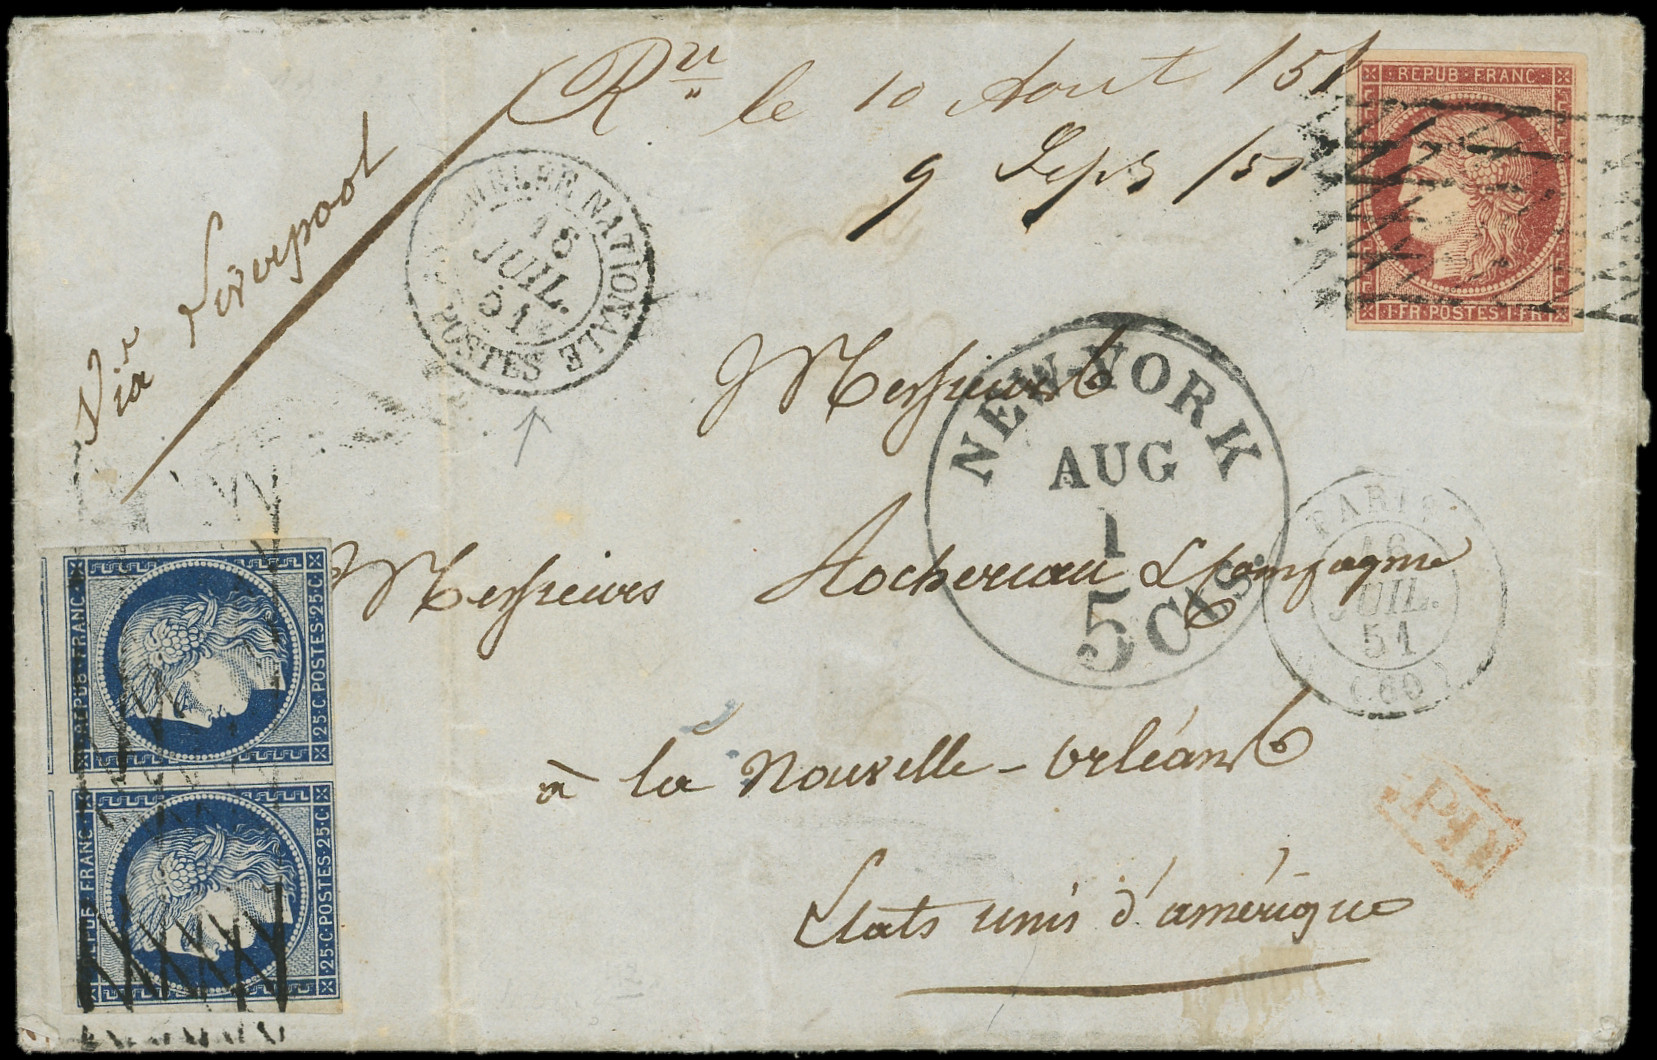 Ru le 10 Aout /51
9 Sept /51
Via Liverpool
ASSEMBLEE NATIONALE
16
JUIL.
51
POSTES
REPUB·FRANC·
1·FR·POSTES·1·FR·
NEW-YORK
AUG
1
5 Cts.
Messieurs
Messieurs Rochereau & Compagnie
PARIS
16
JUIL.
51
(60)
à la Nouvelle-Orléans
PD
Etats unis d'amérique
REPUB·FRANC·
25·C·POSTES·25·C·
REPUB·FRANC·
25·C·POSTES·25·C·